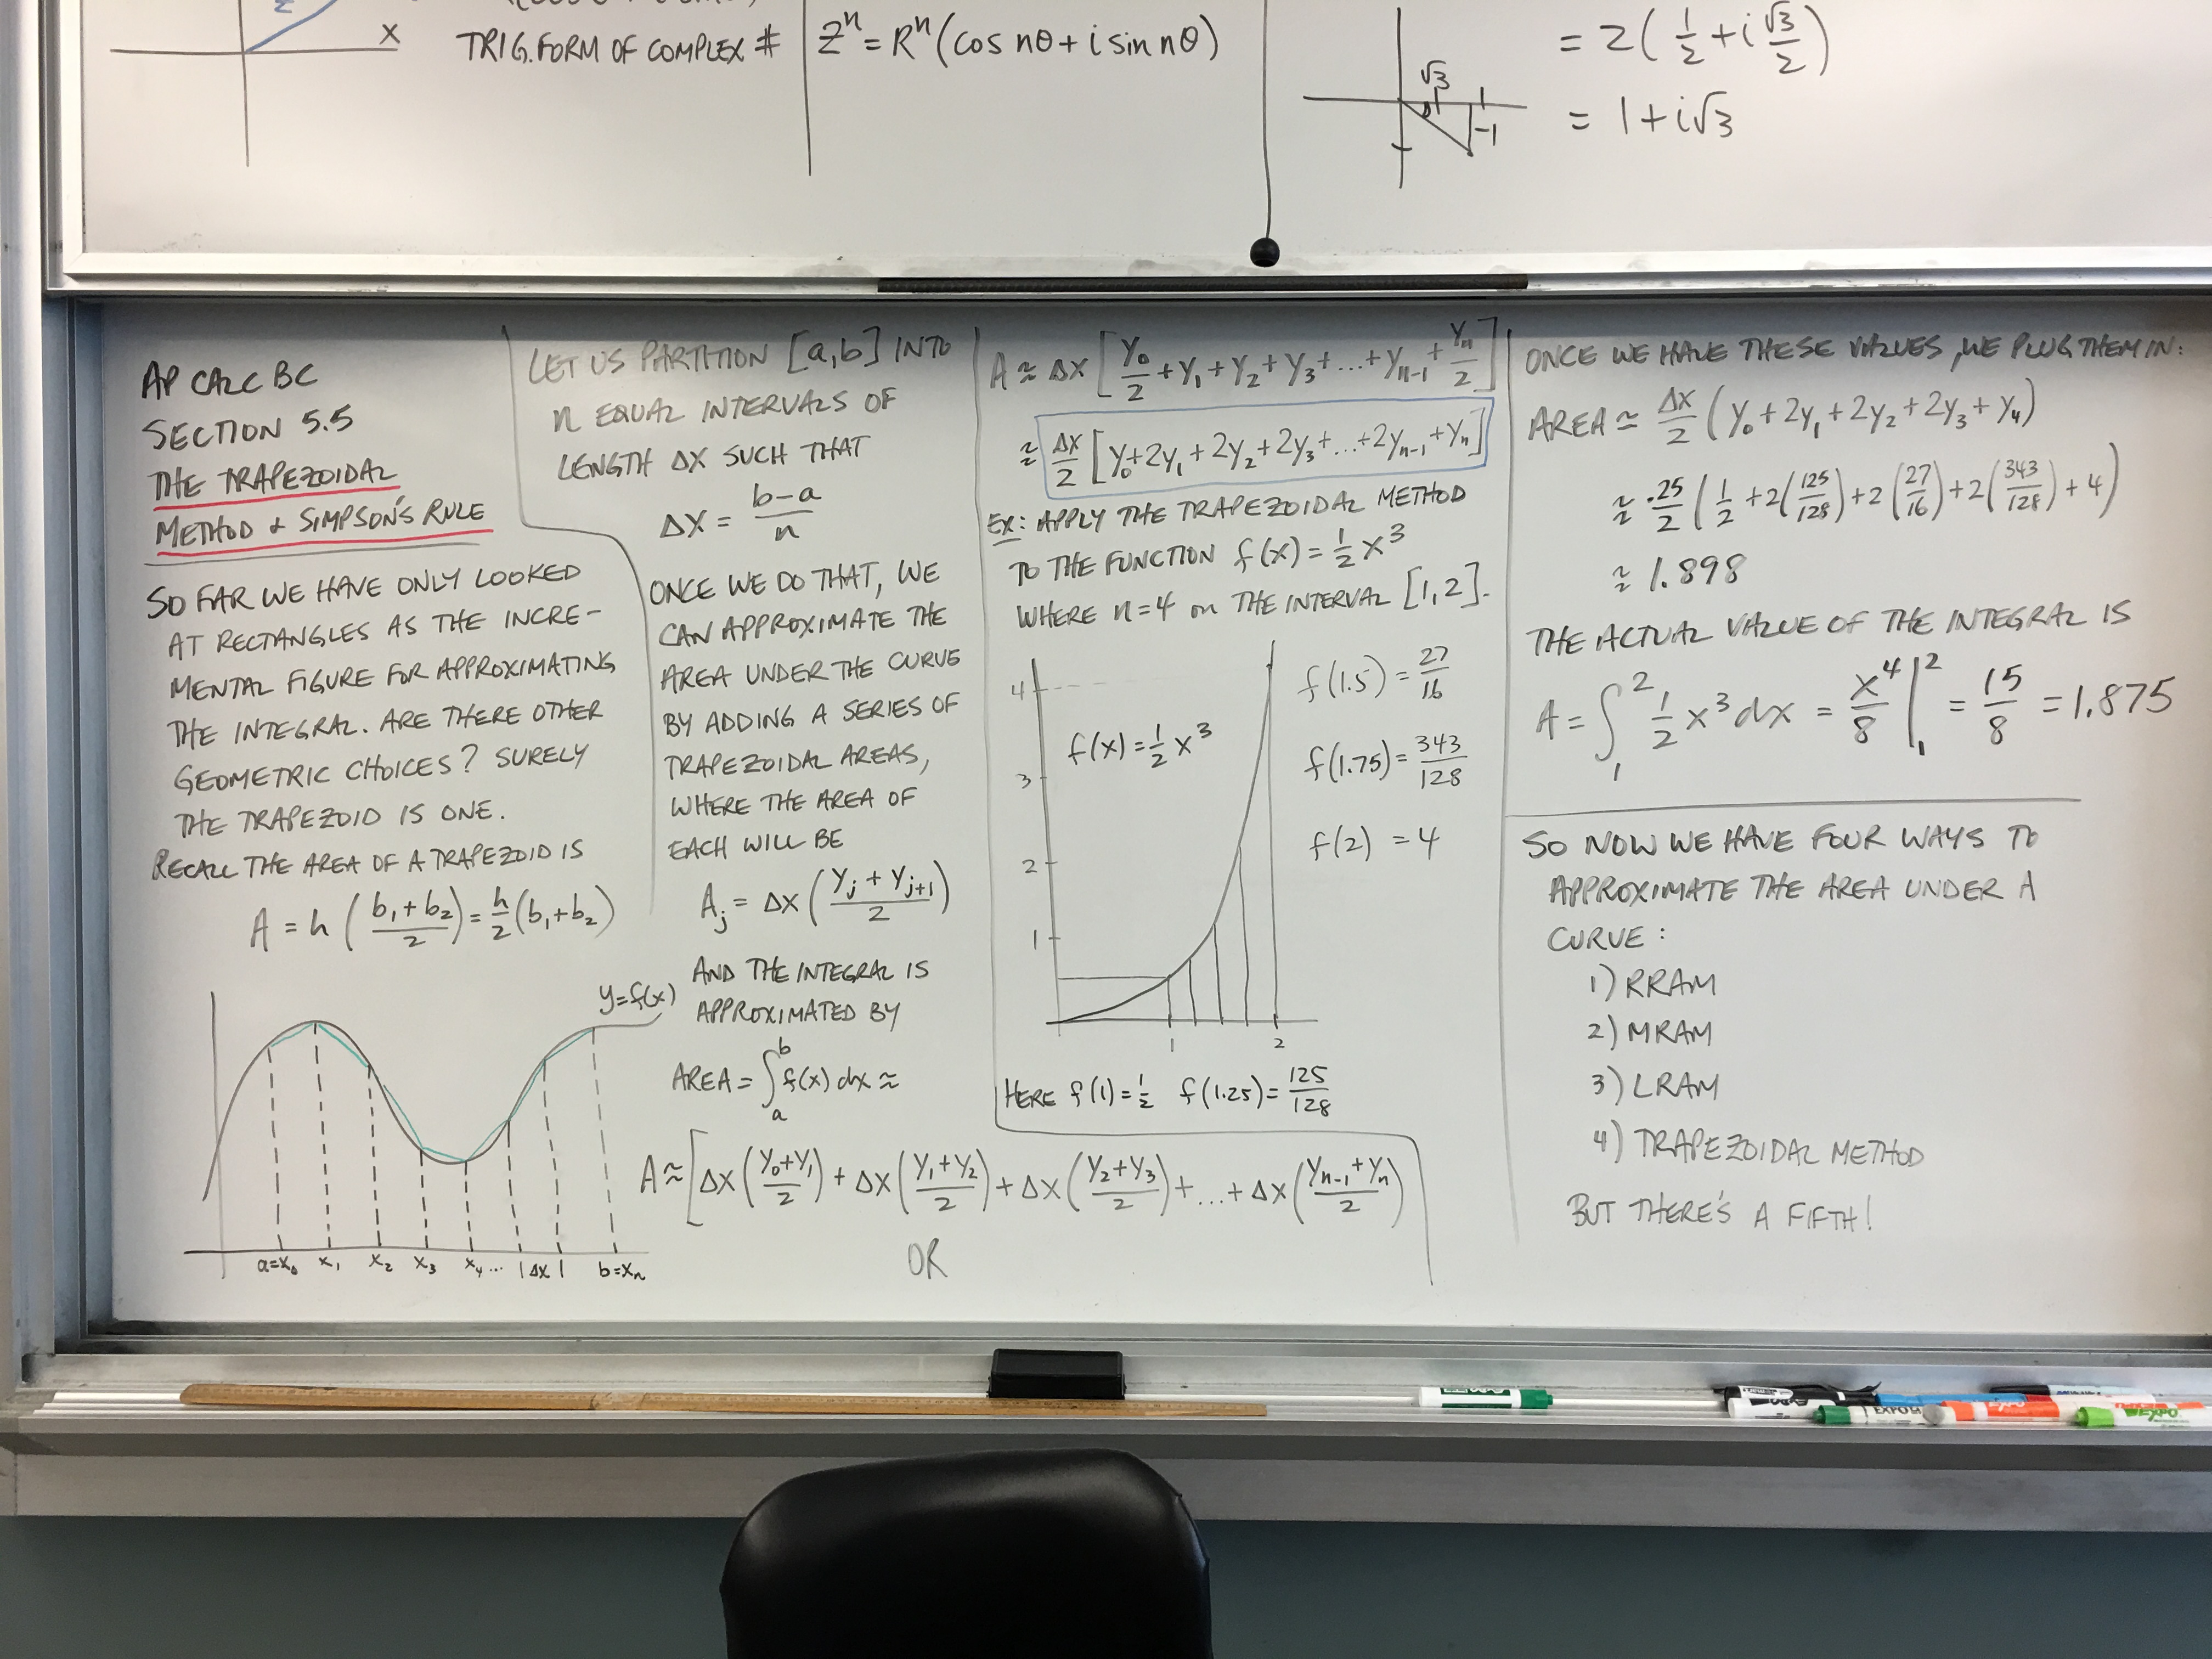 X
TRIG. FORM OF COMPLEX #
Zⁿ = Rⁿ (cos nθ + i sin nθ)
√3
1
-1
= 2( 1/2 + i √3/2 )
= 1 + i√3
AP CALC BC
SECTION 5.5
THE TRAPEZOIDAL
METHOD + SIMPSON'S RULE
SO FAR WE HAVE ONLY LOOKED
AT RECTANGLES AS THE INCRE-
MENTAL FIGURE FOR APPROXIMATING
THE INTEGRAL. ARE THERE OTHER
GEOMETRIC CHOICES? SURELY
THE TRAPEZOID IS ONE.
RECALL THE AREA OF A TRAPEZOID IS
A = h ( (b₁ + b₂)/2 ) = h/2 (b₁+b₂)
y=f(x)
a=x₀ x₁ x₂ x₃ x₄ ... | Δx | b=xₙ
LET US PARTITION [a,b] INTO
n EQUAL INTERVALS OF
LENGTH Δx SUCH THAT
Δx = (b-a)/n
ONCE WE DO THAT, WE
CAN APPROXIMATE THE
AREA UNDER THE CURVE
BY ADDING A SERIES OF
TRAPEZOIDAL AREAS,
WHERE THE AREA OF
EACH WILL BE
Aⱼ = Δx ( (yⱼ + yⱼ₊₁)/2 )
AND THE INTEGRAL IS
APPROXIMATED BY
AREA = ∫ₐᵇ f(x) dx ≈
A ≈ [ Δx ( (y₀+y₁)/2 ) + Δx ( (y₁+y₂)/2 ) + Δx ( (y₂+y₃)/2 ) + ... + Δx ( (yₙ₋₁+yₙ)/2 )
OR
A ≈ Δx [ y₀/2 + y₁ + y₂ + y₃ + ... + yₙ₋₁ + yₙ/2 ]
≈ Δx/2 [ y₀ + 2y₁ + 2y₂ + 2y₃ + ... + 2yₙ₋₁ + yₙ ]
EX: APPLY THE TRAPEZOIDAL METHOD
TO THE FUNCTION f(x) = 1/2 x³
WHERE n=4 on THE INTERVAL [1,2].
4
3
2
1
f(x) = 1/2 x³
1 2
f(1.5) = 27/16
f(1.75) = 343/128
f(2) = 4
HERE f(1) = 1/2 f(1.25) = 125/128
ONCE WE HAVE THESE VALUES, WE PLUG THEM IN:
AREA ≈ Δx/2 ( y₀ + 2y₁ + 2y₂ + 2y₃ + y₄ )
≈ .25/2 ( 1/2 + 2(125/128) + 2(27/16) + 2(343/128) + 4 )
≈ 1.898
THE ACTUAL VALUE OF THE INTEGRAL IS
A = ∫₁² 1/2 x³ dx = x⁴/8 |₁² = 15/8 = 1.875
SO NOW WE HAVE FOUR WAYS TO
APPROXIMATE THE AREA UNDER A
CURVE:
1) RRAM
2) MRAM
3) LRAM
4) TRAPEZOIDAL METHOD
BUT THERE'S A FIFTH!
EXPO
EXPO